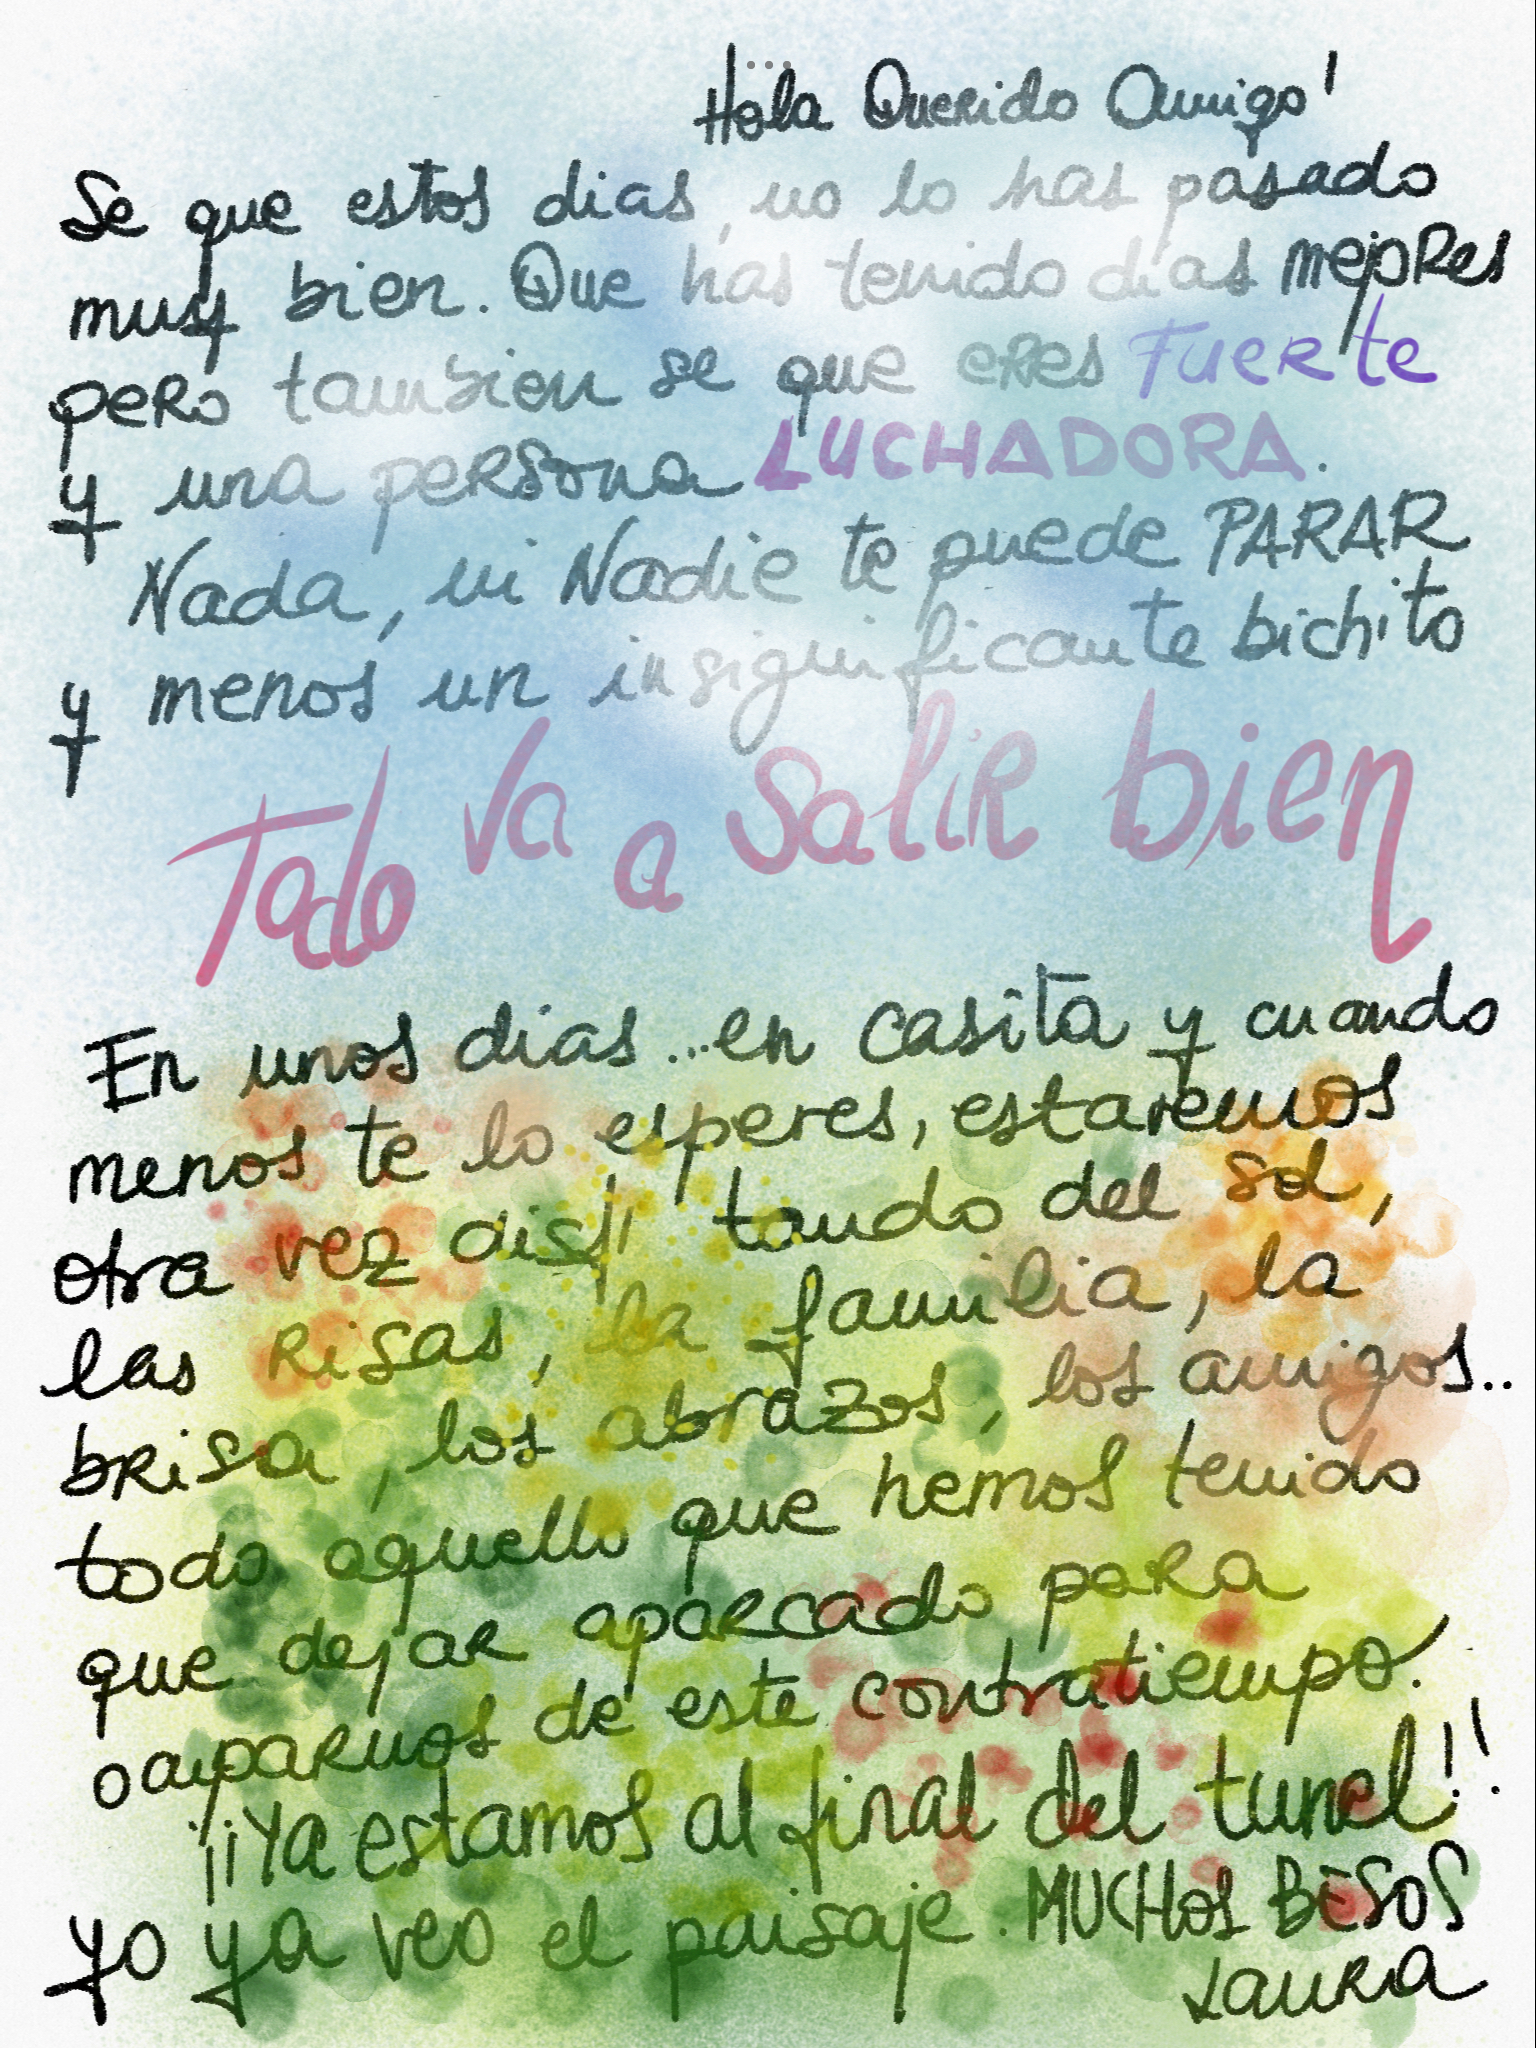 Hola Querido Amigo!
Se que estos dias, no lo has pasado
muy bien. Que has tenido días mejores
pero tambien se que eres Fuerte
y una persona LUCHADORA.
Nada, ni Nadie te puede PARAR
y menos un insignificante bichito
Todo va a salir bien
En unos dias...en casita y cuando
menos te lo esperes, estaremos
otra vez disfrutando del sol,
las risas, la familia, la
brisa, los abrazos, los amigos..
todo aquello que hemos tenido
que dejar aparcado para
ocuparnos de este contratiempo.
¡¡Ya estamos al final del tunel!!
yo ya veo el paisaje. MUCHOS BESOS
Laura